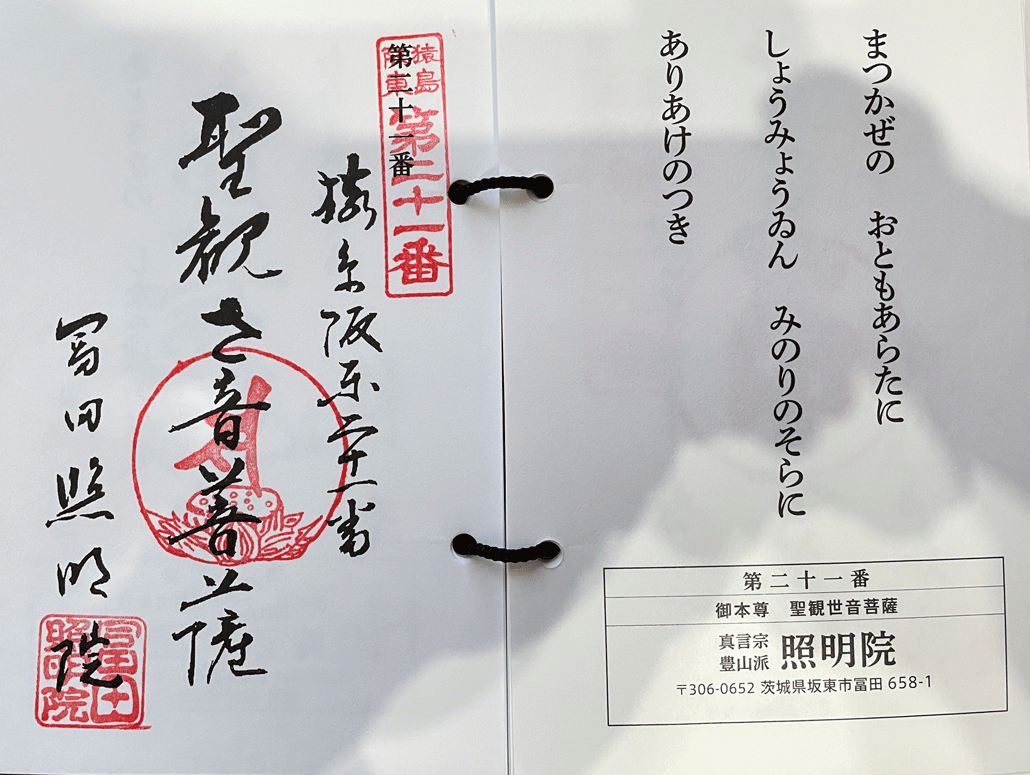 まつかぜの　おともあらたに
しょうみょうゐん　みのりのそらに
ありあけのつき
第二十一番
御本尊　聖観世音菩薩
真言宗
豊山派
照明院
〒306-0652 茨城県坂東市冨田 658-1
猿島
阪東
第二十一番
第二十一番
猿島阪東二十一番
聖観世音菩薩
冨田照明院
冨田
照明院